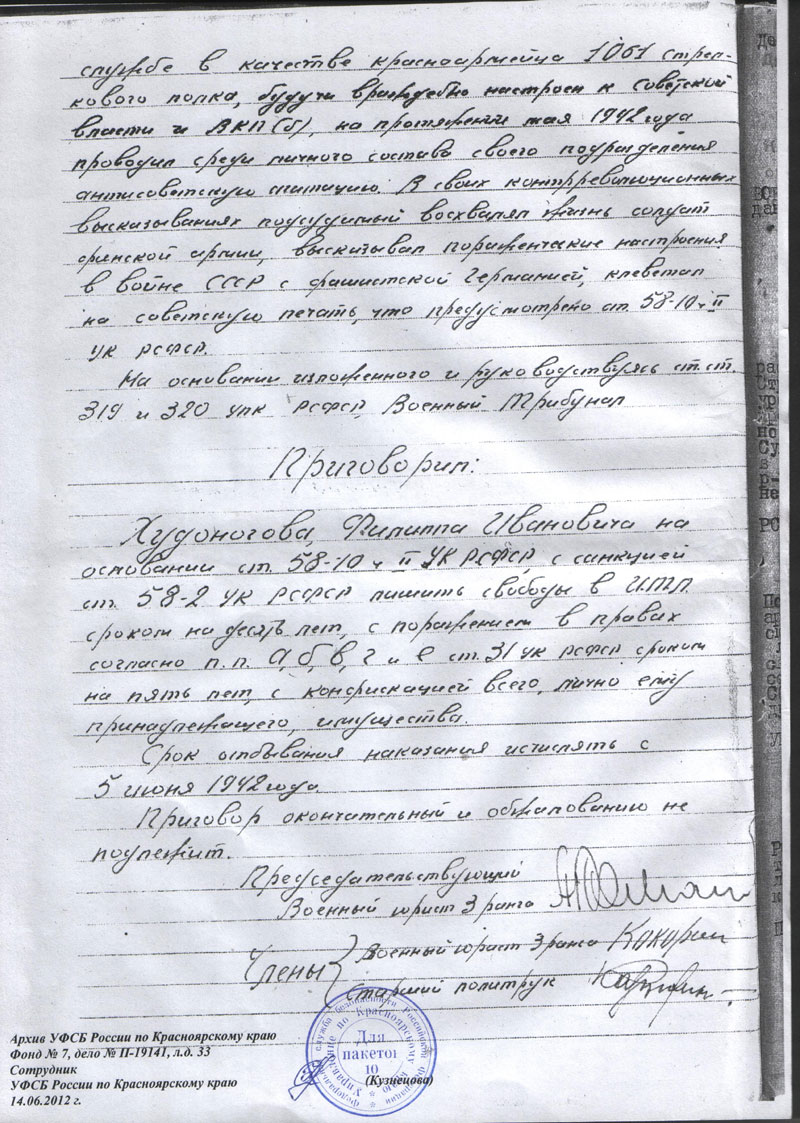 службе в качестве красноармейца 1061 стрел-
кового полка, будучи враждебно настроен к советской
власти и ВКП(б), на протяжении мая 1942 года
проводил среди личного состава своего подразделения
антисоветскую агитацию. В своих контрреволюционных
высказываниях подсудимый восхвалял жизнь солдат
финской армии, высказывал пораженческие настроения
в войне СССР с фашистской Германией, клеветал
на советскую печать, что предусмотрено ст. 58-10 ч II
УК РСФСР.
На основании изложенного и руководствуясь ст.ст.
319 и 320 УПК РСФСР, Военный Трибунал
Приговорил:
Худоногова, Филиппа Ивановича на
основании ст. 58-10 ч II УК РСФСР, с санкцией
ст. 58-2 УК РСФСР лишить свободы в И.Т.Л.
сроком на десять лет, с поражением в правах
согласно п.п. а, б, в, г и е ст. 31 УК РСФСР сроком
на пять лет, с конфискацией всего, лично ему
принадлежащего, имущества.
Срок отбывания наказания исчислять с
5 июня 1942 года.
Приговор окончательный и обжалованию не
подлежит.
Председательствующий
Военный юрист 3 ранга
Члены
Военный юрист 3 ранга Кокорин
Старший политрук
Архив УФСБ России по Красноярскому краю
Фонд № 7, дело № П-19141, л.д. 33
Сотрудник
УФСБ России по Красноярскому краю (Кузнецова)
14.06.2012 г.
Федеральная служба безопасности Российской Федерации
Управление по Красноярскому краю
Для
пакетов
10